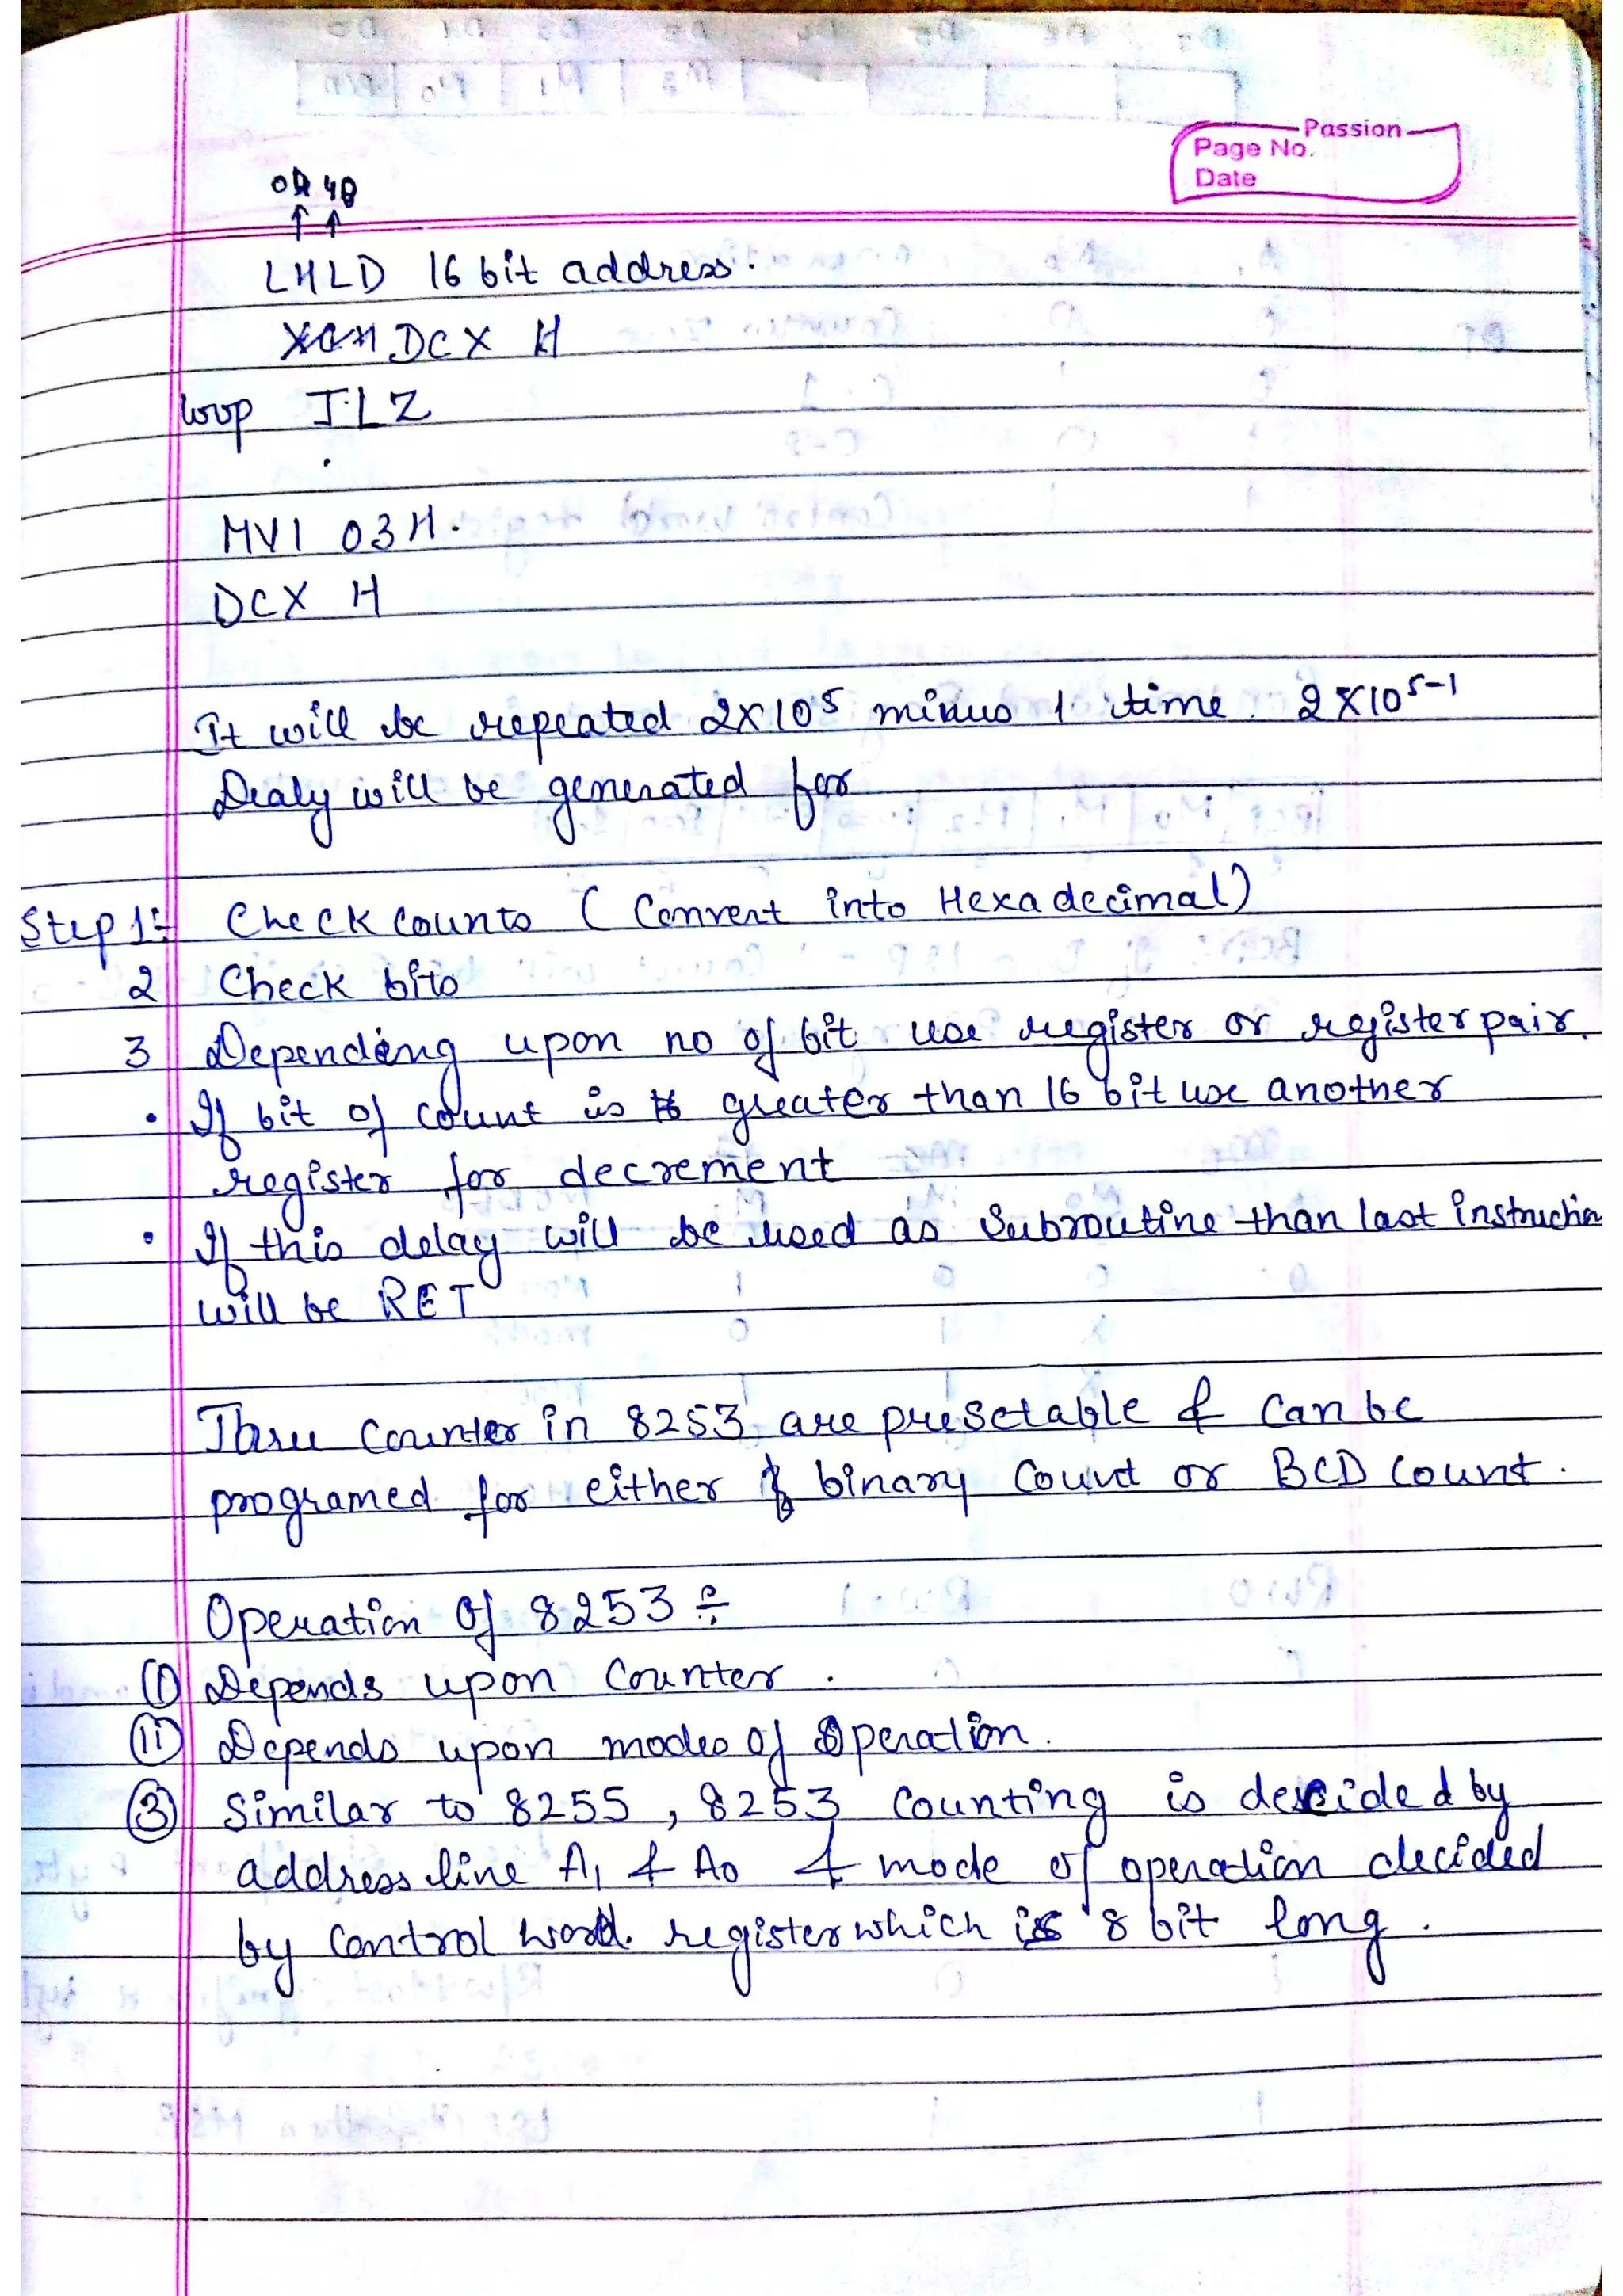 Passion
Page No.
Date
LHLD 16 bit address.
DCX H
loop
MVI 03H.
DCX H
It will be repeated 2X10⁵ minus 1 time. 2X10⁵⁻¹
Dealy will be generated for
Step 1:- Check Counts (Convert into Hexadecimal)
2 Check bits
3 Depending upon no of bit use register or register pair.
• If bit of count is greater than 16 bit use another
register for decrement
• If this delay will be used as Subroutine than last instruction
will be RET
Three Counter in 8253 are presetable & can be
programed for either binary Count or BCD Count.
Operation of 8253 :-
(1) Depends upon Counter.
(11) Depends upon modes of Operation.
(3) Similar to 8255, 8253 Counting is decided by
address line A1 & A0 & mode of operation decided
by Control word. register which is 8 bit long.